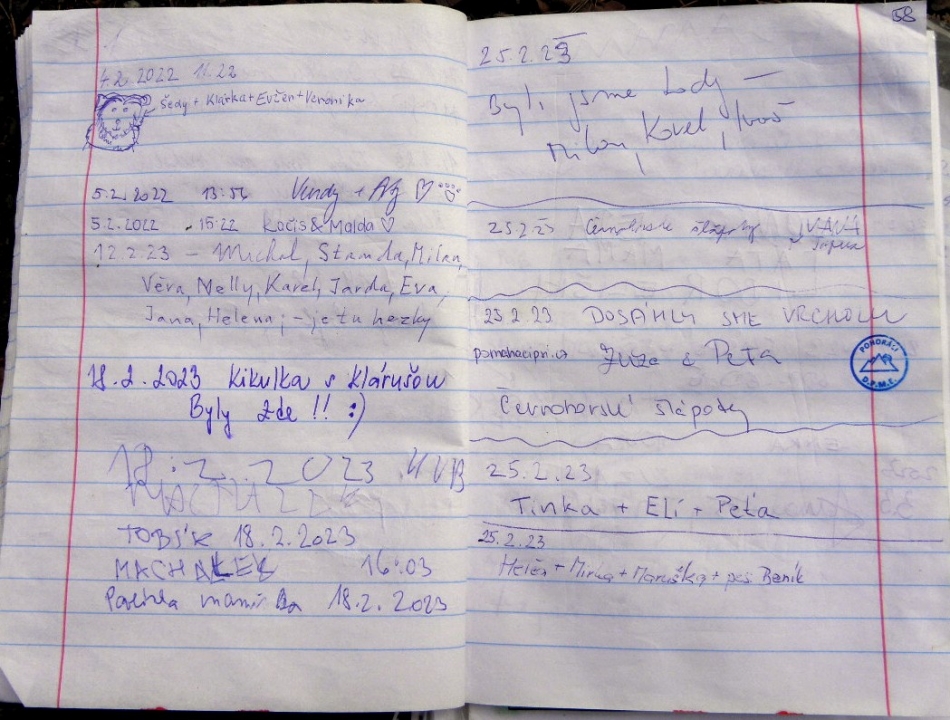 4.2.2022 11.22
Šedy + Klárka + Evžen + Veronika
5.2.2022 13:56 Vendy +
5.2.2022 - 15:22 Kočis & Malda ♡
12.2.23 - Michal, Standa, Milan,
Věra, Nelly, Karel, Jarda, Eva,
Jana, Helena; - je tu hezky
18.2.2023 Kikulka s Klárušou
Byly zde !! :)
18.2.2023
TOBSÍK 18.2.2023
MACHÁLEK 16:03
18.2.2023
58
25.2.23
Byli jsme
Milan, Karel,
25.2.23 Černohorské šlápoty
25.2.23 DOSÁHLY SME VRCHOLU
Zuza & Peťa
POHORÁCI
D.P.M.L.
Černohorské šlápoty
25.2.23
Tinka + Eli + Peťa
25.2.23
Helen + Mirka + Maruška + pes Beník